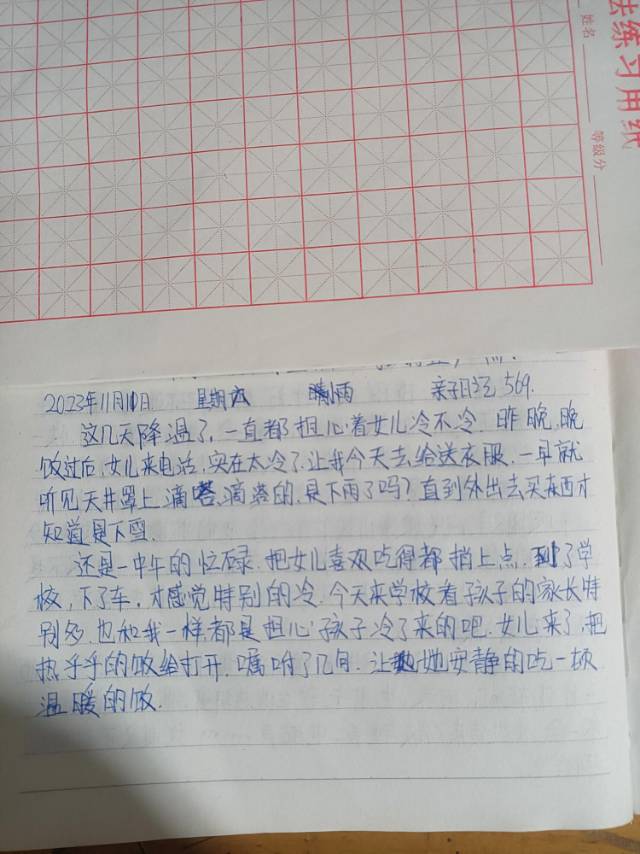 法练习用纸
姓名
等级分
2023年11月10日 星期六 晴小雨 亲子日记 569.
这几天降温了,一直都担心着女儿冷不冷.昨晚,晚
饭过后,女儿来电话,实在太冷了,让我今天去给送衣服.一早就
听见天井罩上,滴嗒,滴落的,是下雨了吗?直到外出去买东西才
知道是下雪.
还是一中午的忙碌.把女儿喜欢吃得都捎上点.到了学
校,下了车,才感觉特别的冷.今天来学校看孩子的家长特
别多,也和我一样都是担心孩子冷了来的吧.女儿来了,把
热乎乎的饭给打开.嘱咐了几句.让她安静的吃一顿
温暖的饭.